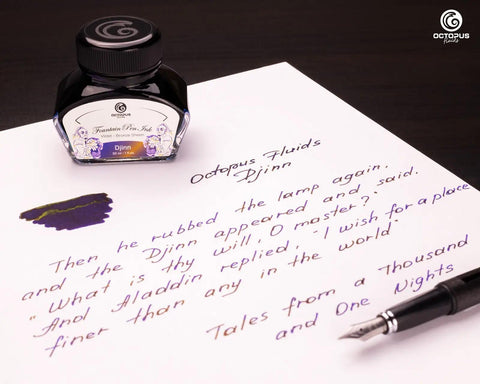 OCTOPUS
fluids
OCTOPUS
Fountain Pen Ink
Violet - Bronze Sheen
Djinn
Octopus Fluids
Djinn
Then he rubbed the lamp again,
and the Djinn appeared and said.
"What is thy will, O master?"
And Aladdin replied, "I wish for a place
finer than any in the world"
Tales from a Thousand
and One Nights